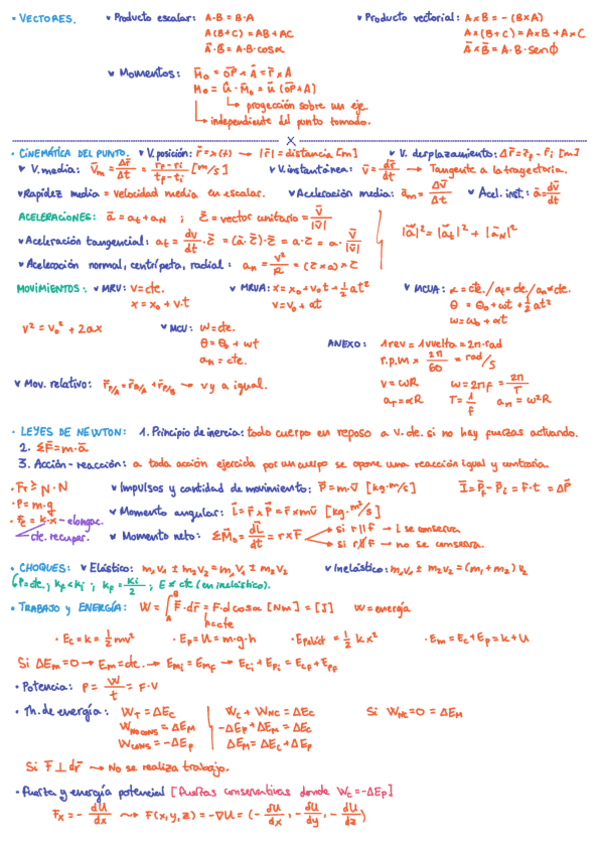 · VECTORES. ▾ Producto escalar: A·B = B·A ▾ Producto vectorial: A×B = -(B×A)
A(B+C) = AB+AC A×(B+C) = A×B + A×C
A⃗·B⃗ = A·B·cosα A⃗×B⃗ = A·B·senϕ
▾ Momentos: M⃗o = o⃗P × A⃗ = r⃗×A
Mo = û·M⃗o = u⃗ (o⃗P×A)
proyección sobre un eje
independiente del punto tomado.
x
· CINEMÁTICA DEL PUNTO. ▾ V.posición: r⃗ = x(t) → |r⃗| = distancia [m] ▾ V. desplazamiento: Δr⃗ = r⃗f - r⃗i [m]
▾ V.media: V⃗m = Δr⃗/Δt = (rf-ri)/(tf-ti) [m/s] ▾ V.instantánea: v⃗ = dr⃗/dt → Tangente a la trayectoria.
▾ Rapidez media = velocidad media en escalar. ▾ Aceleración media: a⃗m = ΔV⃗/Δt ▾ Acel. inst.: a⃗ = dv⃗/dt
ACELERACIONES: a⃗ = at + aN ; = vector unitario = v⃗/|v⃗|
|a⃗|² = |a⃗t|² + |a⃗N|²
▾ Aceleración tangencial: at = dv/dt
▾ Aceleración normal, centrípeta, radial: an = v²/R
MOVIMIENTOS: ▾ MRV: v = cte. ▾ MRVA: x = x₀ + v₀t + ½at² ▾ MCVA: α = cte./at = cte/an ≠ cte.
x = x₀ + v·t v = v₀ + at θ = θ₀ + ωt + ½αt²
ω = ω₀ + αt
v² = v₀² + 2ax ▾ MCU: ω = cte. ANEXO: 1rev = 1vuelta = 2π·rad
θ = θ₀ + ωt r.p.m × 2π/60 = rad/s
an = cte.
▾ Mov. relativo: r⃗P/A = r⃗B/A + r⃗P/B → v y a igual. v = ωR ω = 2πf = 2π/T
aT = αR T = 1/f an = ω²R
· LEYES DE NEWTON: 1. Principio de inercia: todo cuerpo en reposo a v.cte. si no hay fuerzas actuando.
2. ΣF⃗ = m·a⃗
3. Acción-reacción: a toda acción ejercida por un cuerpo se opone una reacción igual y contraria.
· Fr ≥ N·N ▾ Impulsos y cantidad de movimiento: P⃗ = m·v⃗ [kg·m/s] I⃗ = P⃗f - P⃗i = F·t = ΔP⃗
· P = m·g
· Fe = k·x – elongac. ▾ Momento angular: L⃗ = r⃗×P⃗ = r⃗×mv⃗ [kg·m²/s]
cte. recuper. ▾ Momento neto: ΣM⃗o = dL⃗/dt = r×F → si r∥f → L se conserva
→ si r∦F → no se conserva.
· CHOQUES: ▾ Elástico: m₁v₁ ± m₂v₂ = m₁v₁ ± m₂v₂ ▾ Inelástico: m₁v₁ ± m₂v₂ = (m₁+m₂)
P = cte., kf < ki ; kf = ki/2 ; E ≠ cte (en inelástico).
· TRABAJO y ENERGÍA: W = ∫ F⃗·dr⃗ = F·d cosα [Nm] = [J] W = energía
A B
F = cte
· Ec = k = ½mv² · Ep = U = m·g·h · Epelást = ½kx² · Em = Ec + Ep = k + U
Si ΔEm = 0 → Em = cte. → Emi = Emf → Eci + Epi = Ecf + Epf
· Potencia: P = W/t = F·V
· Th. de energía: WT = ΔEc Wc + WNC = ΔEc Si WNC = 0 = ΔEM
WNO CONS = ΔEM -ΔEp + ΔEM = ΔEc
WCONS = -ΔEp ΔEM = ΔEc + ΔEp
Si F⃗ ⊥ dr⃗ → No se realiza trabajo.
· Fuerza y energía potencial [Fuerzas conservativas donde Wc = -ΔEp]
Fx = - dU/dx ⇝ F(x,y,z) = -∇U = (- dU/dx, - dU/dy, - dU/dz)